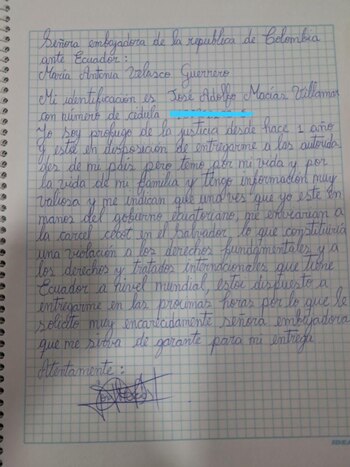 Señora embajadora de la republica de Colombia
ante Ecuador:
Maria Antonia Velasco Guerrero
Mi identificación es José Adolfo Macías Villamar
con número de cédula
Yo soy profugo de la justicia desde hace 1 año
y estoy en disposición de entregarme a las autorida
des de mi país pero temo por mi vida y por
la vida de mi familia y tengo información muy
valiosa y me indican que una ves que yo este en
manos del gobierno ecuatoriano, me enviarian a
la carcel cecot en el Salvador, lo que constituiria
una violación a los derechos fundamentales y a
los derechos y tratados internacionales que tiene
Ecuador a nivel mundial, estoi dispuesto a
entregarme en las proximas horas por lo que le
solicito muy encarecidamente señora embajadora
que me sirva de garante para mi entrega
Atentamente: